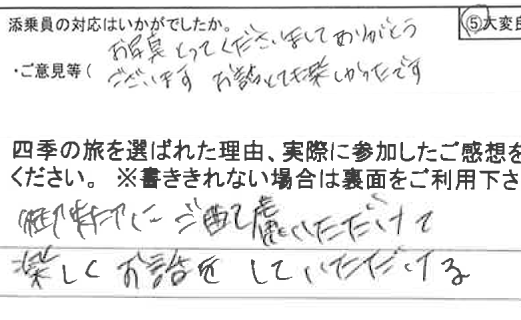 添乗員の対応はいかがでしたか。 ⑤大変良
お写真とってくださいましてありがとう
・ご意見等( ございます お話とても楽しかったです
四季の旅を選ばれた理由、実際に参加したご感想を
ください。 ※書ききれない場合は裏面をご利用下さ
にご配慮いただいて
楽しくお話をしていただける